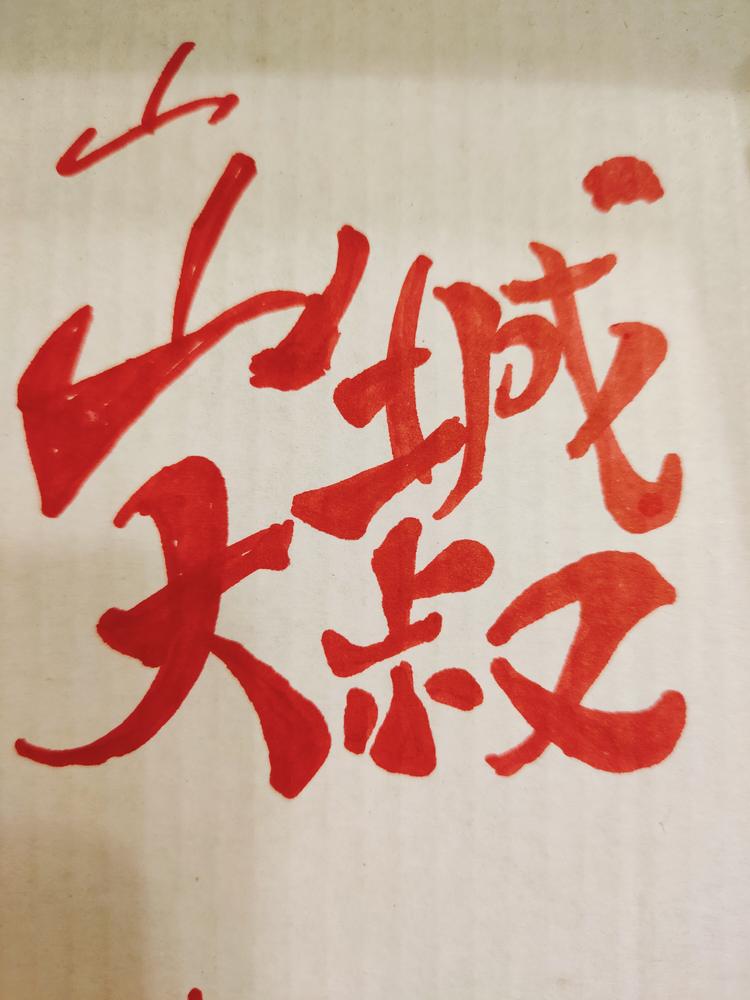 山
山城
大叔